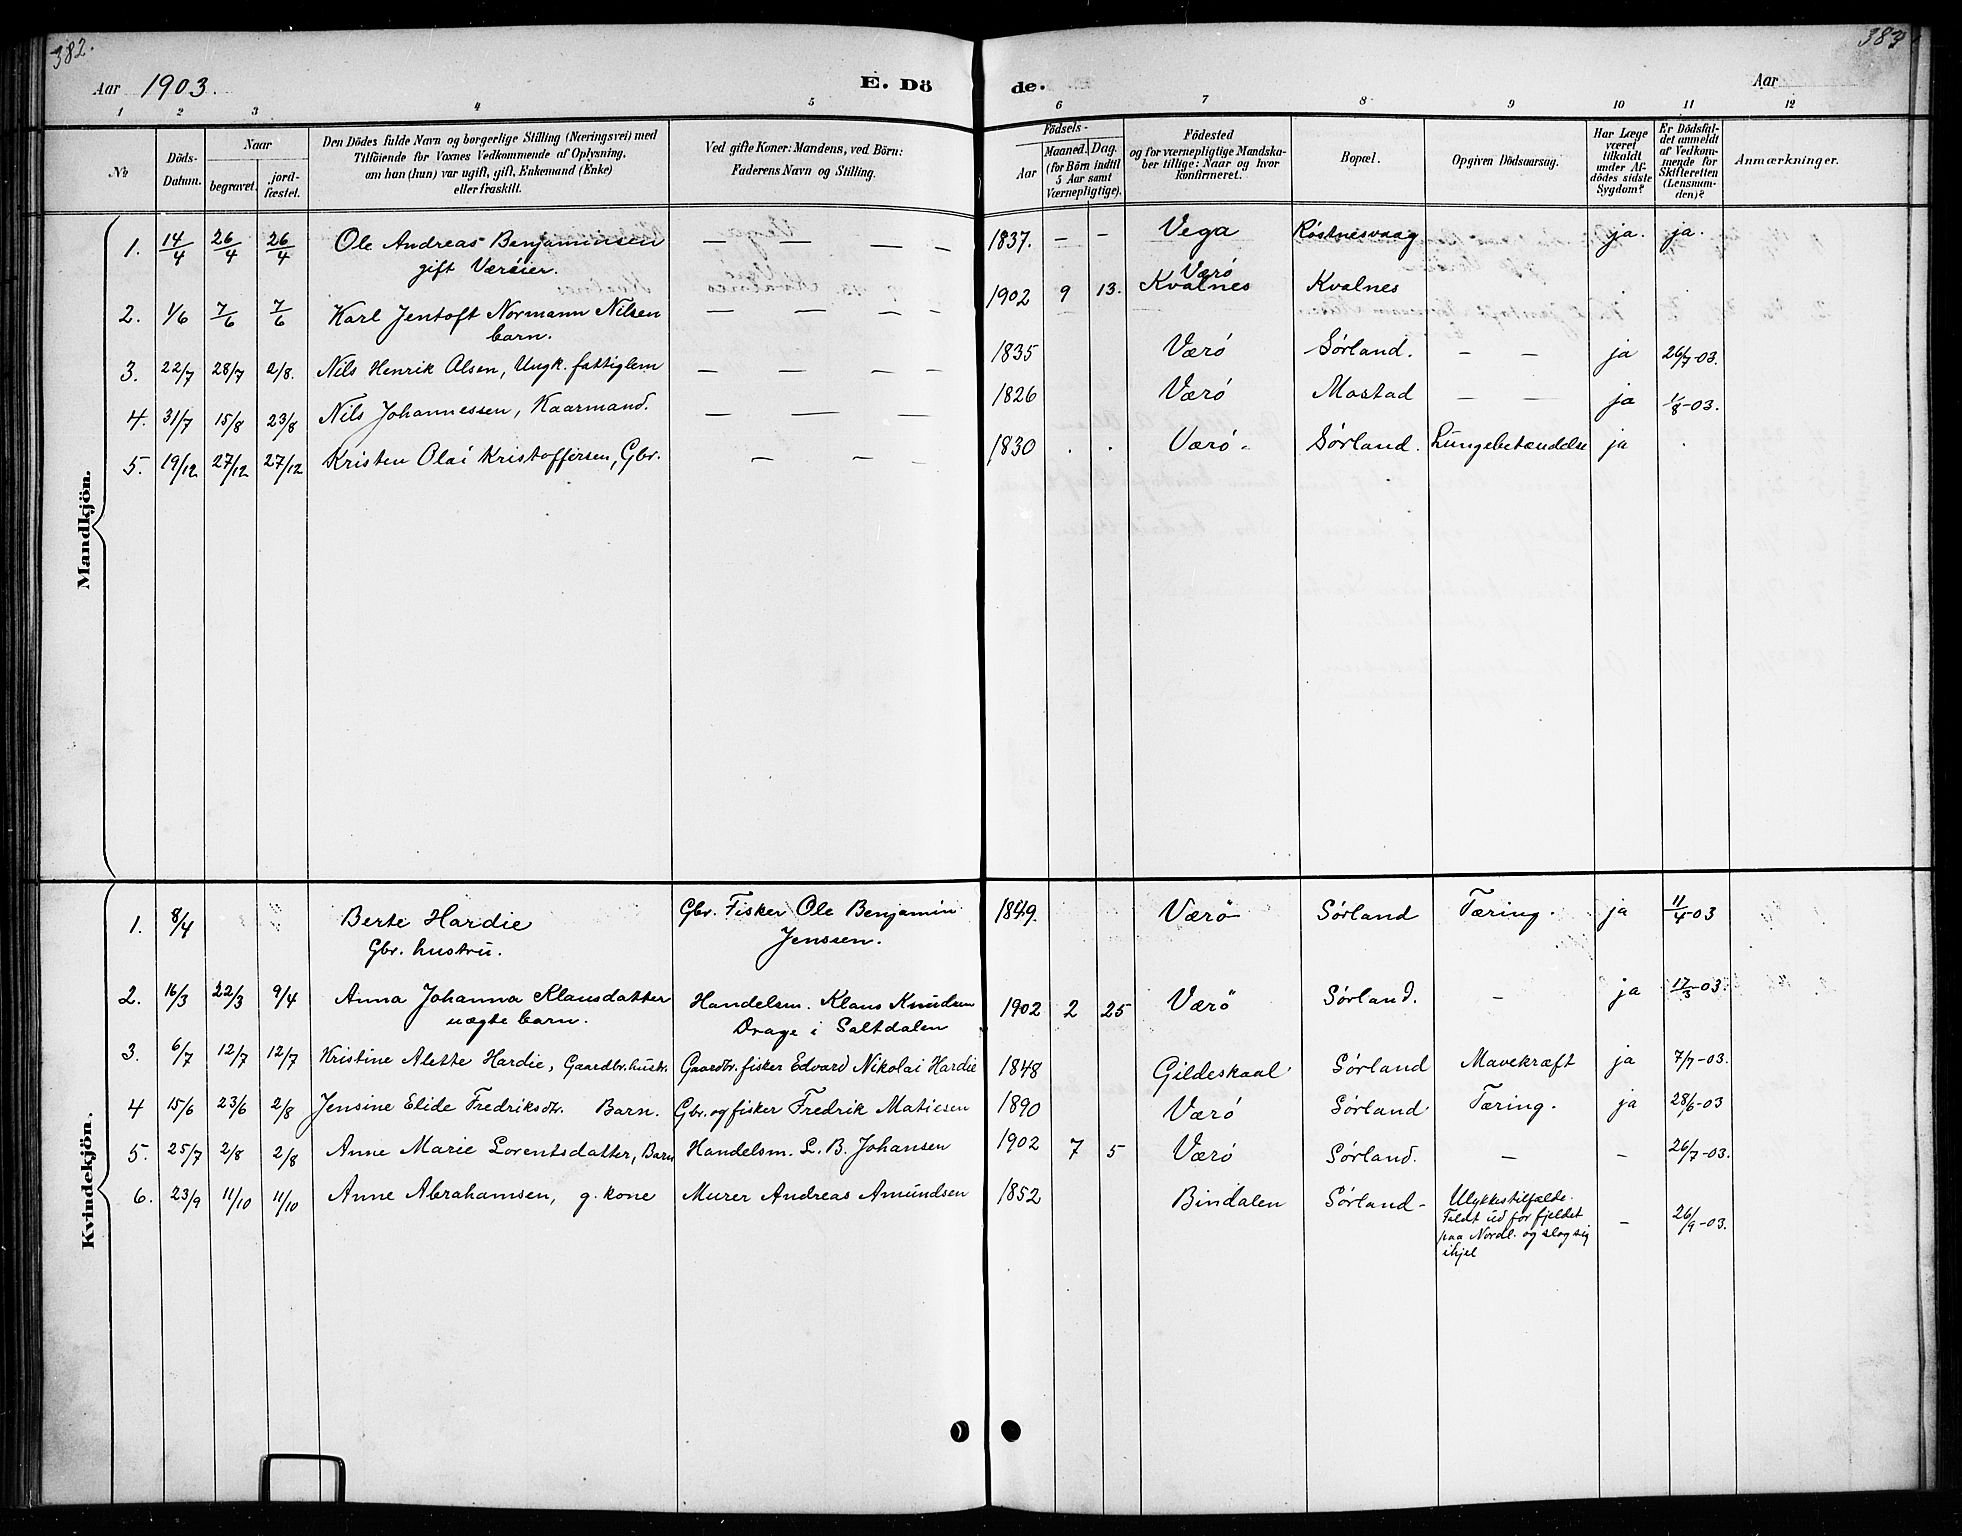 382.
383
Aar 1903.
E. Dö
de.
Aar
1 2 3 4 5 6 7 8 9 10 11 12
No
Döds-Datum.
Naar
begravet.
jord-fæstet.
Den Dödes fulde Navn og borgerlige Stilling (Næringsvei) med
Tilföiende for Voxnes Vedkommende af Oplysning,
om han (hun) var ugift, gift, Enkemand (Enke)
eller fraskilt.
Ved gifte Koner: Mandens, ved Börn:
Faderens Navn og Stilling.
Födsels-
Aar
Maaned. Dag.
(for Börn indtil
5 Aar samt
Værnepligtige).
Födested
og for værnepligtige Mandska-
ber tillige: Naar og hvor
konfirmeret.
Bopæl.
Opgiven Dödsaarsag.
Har Læge
været
tilkaldt
under Af-
dödes sidste
Sygdom?
Er Dödsfal-
det anmeldt
af Vedkom-
mende for
Skifteretten
(Lensman-
den)?
Anmærkninger.
Mandkjön.
1. 14/4 26/4 26/4 Ole Andreas Benjaminsen — — — — 1837. — — Vega Røstnesvaag ja. ja.
gift Væróier.
2. 1/6 7/6 7/6 Karl Jentoft Normann Nilsen — — — — 1902 9 13. Værö Kvalnes Kvalnes
barn.
3. 22/7 28/7 2/8. Nils Henrik Olsen, Ungk. fattiglem — — — — 1835 Værö Sørland. — — ja 26/7-03.
4. 31/7 15/8 23/8 Nils Johannessen, Kaarmand. — — — 1826 Værö Mostad — — ja 1/8-03.
5. 19/12 27/12 27/12 Kristen Olai Kristoffersen, Gbr. — — — 1830 . . Værö. Sørland. Lungebetændelse ja .
Kvindekjön.
1. 8/4 Berte Hardie Gbr. Fisker Ole Benjamin 1849. Værö Sørland Tæring. ja 11/4-03
Gbr. hustru. Jenssen.
2. 16/3 22/3 9/4 Anna Johanna Klausdatter Handelsm. Klaus Knudsen 1902 2 25 Værö Sørland. — ja 17/3-03.
uægte barn. Drage i Saltdalen
3. 6/7 12/7 12/7 Kristine Alette Hardie, Gaardbr.hustr. Gaardbr. fisker Edvard Nikolai Hardie 1848 Gildeskaal Sørland Mavekræft ja 7/7-03.
4 15/6 23/6 2/8 Jensine Elide Fredriksdtr. Barn. Gbr. og fisker Fredrik Matiesen 1890 Værö Sørland Tæring. ja 28/6-03
5. 25/7 2/8 2/8 Anne Marie Lorentsdatter, Barn Handelsm. L. B. Johansen 1902 7 5 Værö Sørland. — — 26/7-03.
6. 23/9 11/10 11/10 Anne Abrahamsen, g. kone Murer Andreas Amundsen 1852 Bindalen Sørland- Ulykkestilfælde. — 26/9-03.
Faldt ud for fjeldet
paa Nordl. og slog sig
ihjel